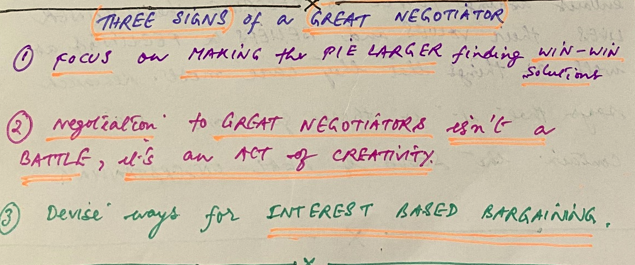 THREE SIGNS of a GREAT NEGOTIATOR
① FOCUS on MAKING the PIE LARGER finding WIN-WIN
solutions
② negotiation to GREAT NEGOTIATORS isn't a
BATTLE, it's an ACT of CREATIVITY.
③ Devise ways for INTEREST BASED BARGAINING.